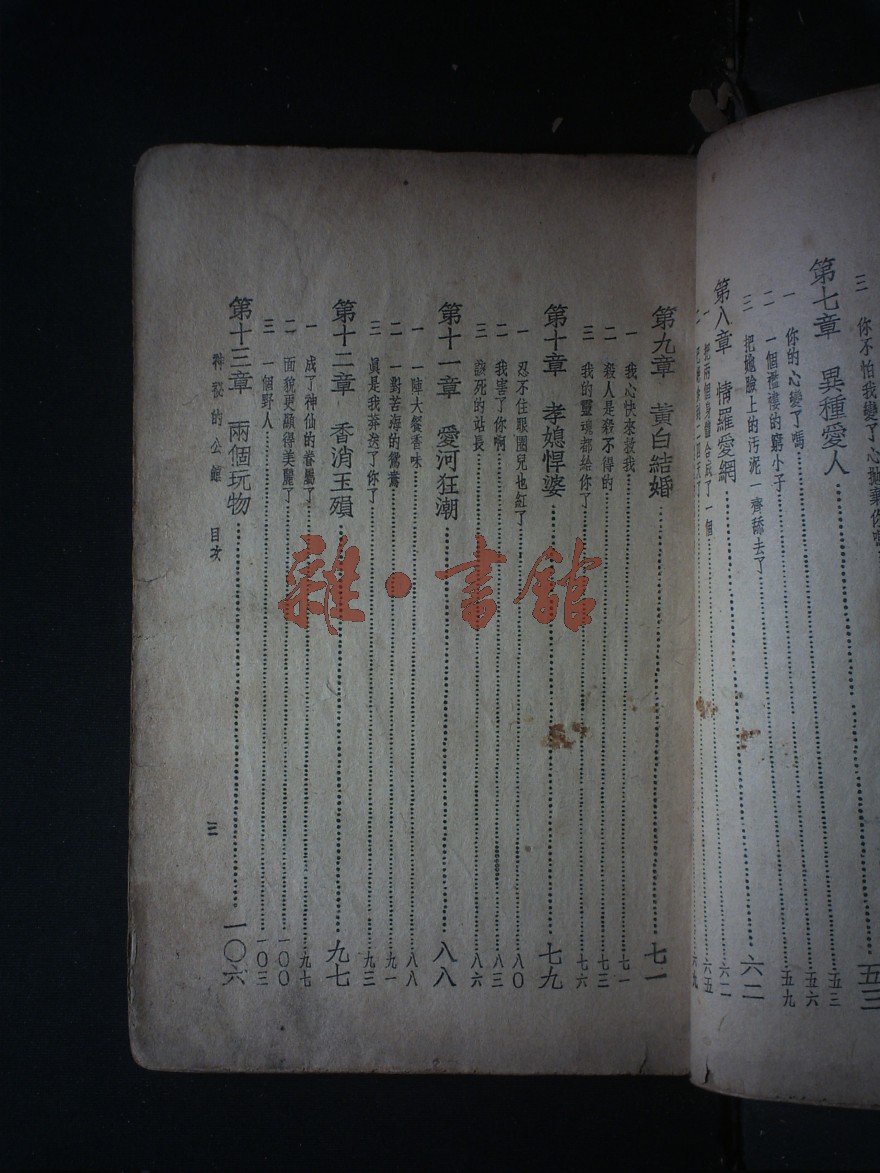 三 你不怕我變了心拋棄你嗎
第七章 異種愛人……五三
一 你的心變了嗎……五三
二 一個襤褸的窮小子……五六
三 把她臉上的污泥一齊舔去了……五九
第八章 情羅愛網……六二
一 把兩個身體合成了一個……六二
二……六五
第九章 黃白結婚……七一
一 我心快來救我……七一
二 殺人是殺不得的……七三
三 我的靈魂都給你了……七六
第十章 孝媳悍婆……七九
一 忍不住眼圈兒也紅了……八〇
二 我害了你啊……八三
三 該死的站長……八六
第十一章 愛河狂潮……八八
一 一陣大餐香味……八八
二 一對苦海的鴛鴦……九一
三 眞是我葬送了你了……九三
第十二章 香消玉殞……九七
一 成了神仙的眷屬了……九七
二 面貌更顯得美麗了……一〇〇
三 一個野人……一〇三
第十三章 兩個玩物……一〇六
神秘的公館 目次 三
雜·書館